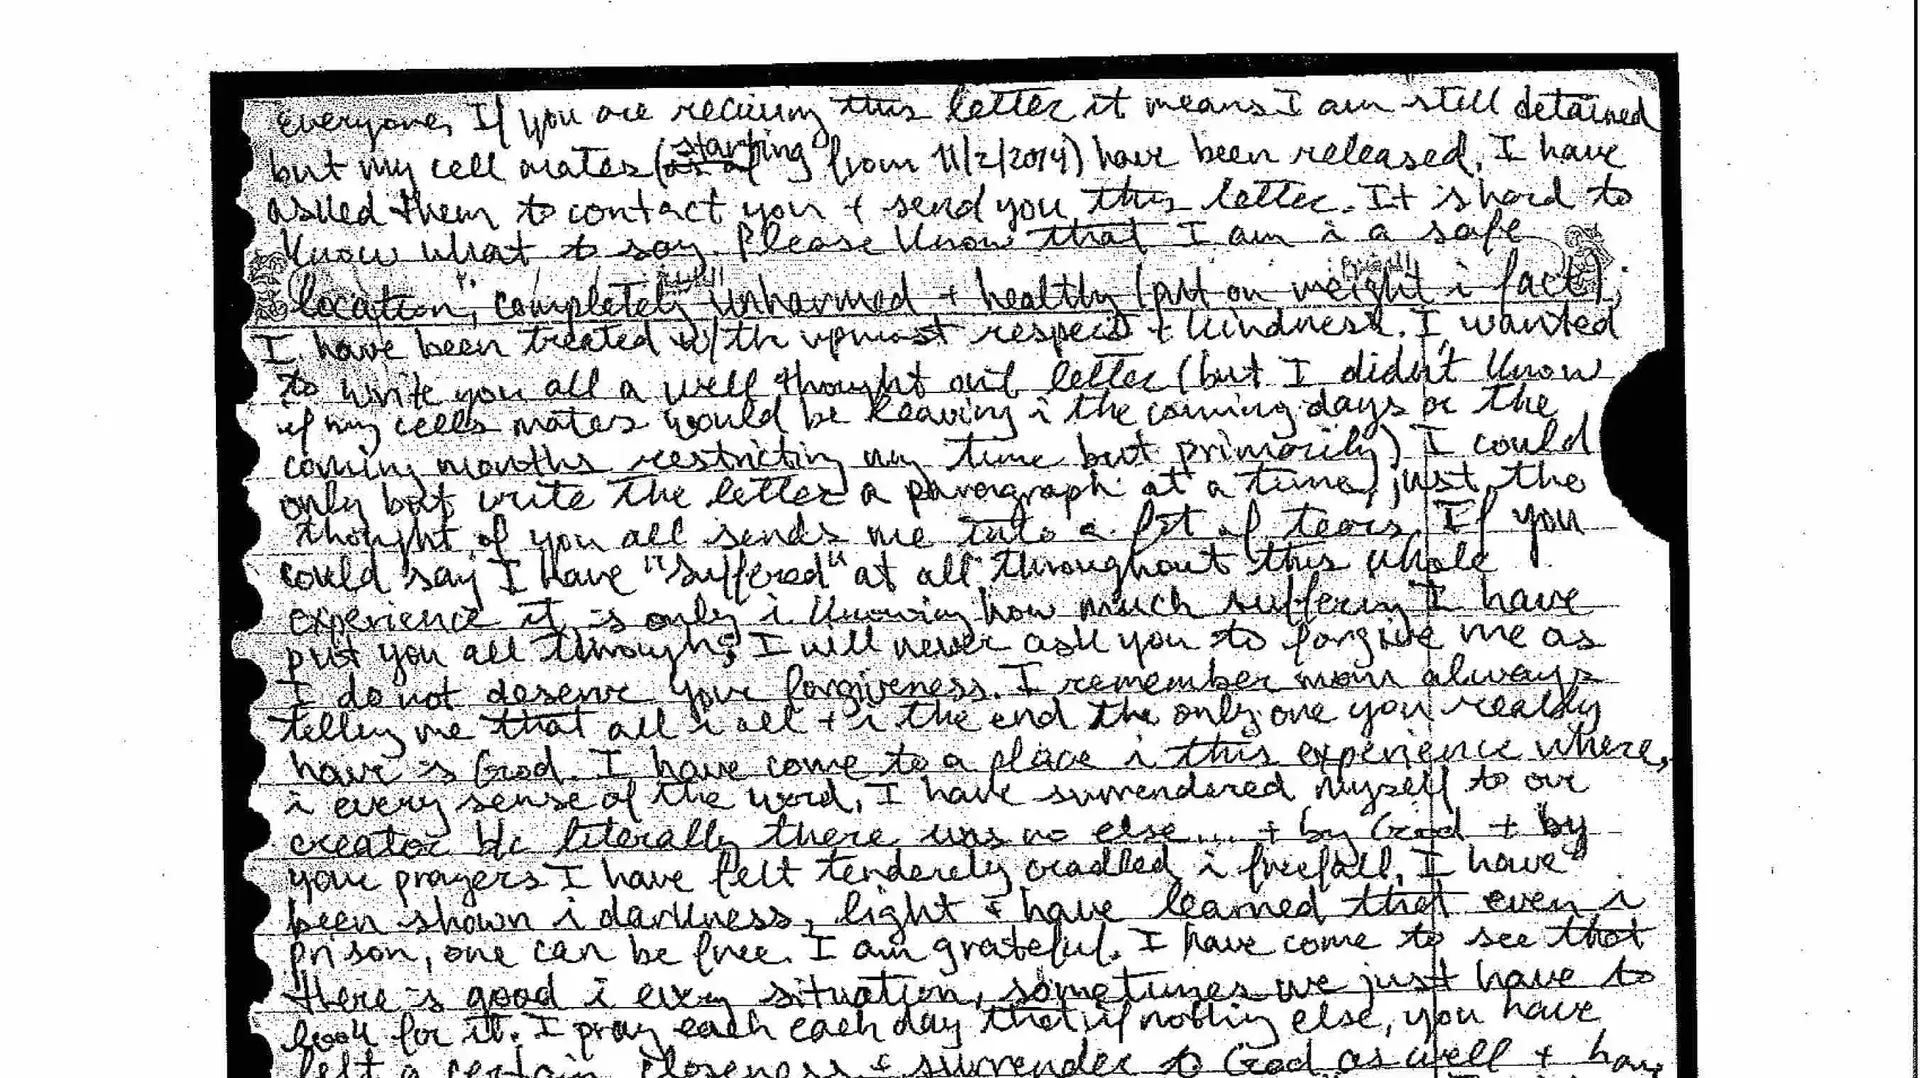 everyone, If you are receiving this letter it means I am still detained
but my cell mates (starting from 11/2/2014) have been released. I have
asked them to contact you + send you this letter. It is hard to
know what to say. Please know that I am i a safe
location, completely unharmed + healthy (put on weight i fact);
I have been treated w/ the upmost respect + kindness. I wanted
to write you all a well thought out letter (but I didn't know
if my cells mates would be leaving i the coming days or the
coming months restricting my time but primarily) I could
only but write the letter a paragraph at a time, just the
thought of you all sends me into a fit of tears. If you
could say I have "suffered" at all throughout this whole
experience it is only i knowing how much suffering I have
put you all through; I will never ask you to forgive me as
I do not deserve your forgiveness. I remember mom always
telling me that all i all + i the end the only one you really
have is God. I have come to a place i this experience where,
i every sense of the word, I have surrendered myself to our
creator b/c literally there was no else.... + by God + by
your prayers I have felt tenderly cradled i freefall. I have
been shown i darkness, light + have learned that even i
prison, one can be free. I am grateful. I have come to see that
there is good i every situation, sometimes we just have to
look for it. I pray each each day that if nothing else, you have
felt a certain closeness + surrender to God as well + have